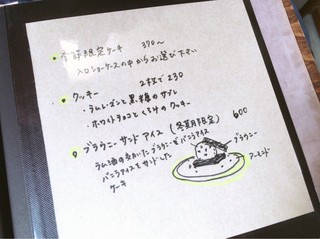 季節限定ケーキ 370〜
入口ショーケースの中からお選び下さい
クッキー 2枚で230
・ラムレーズンと黒糖のサブレ
・ホワイトチョコとくるみのクッキー
ブラウニーサンドアイス (冬期限定) 600
ラム酒の効いたブラウニーでバニラアイスをサンドしたケーキ
バニラアイス
ブラウニー
アーモンド